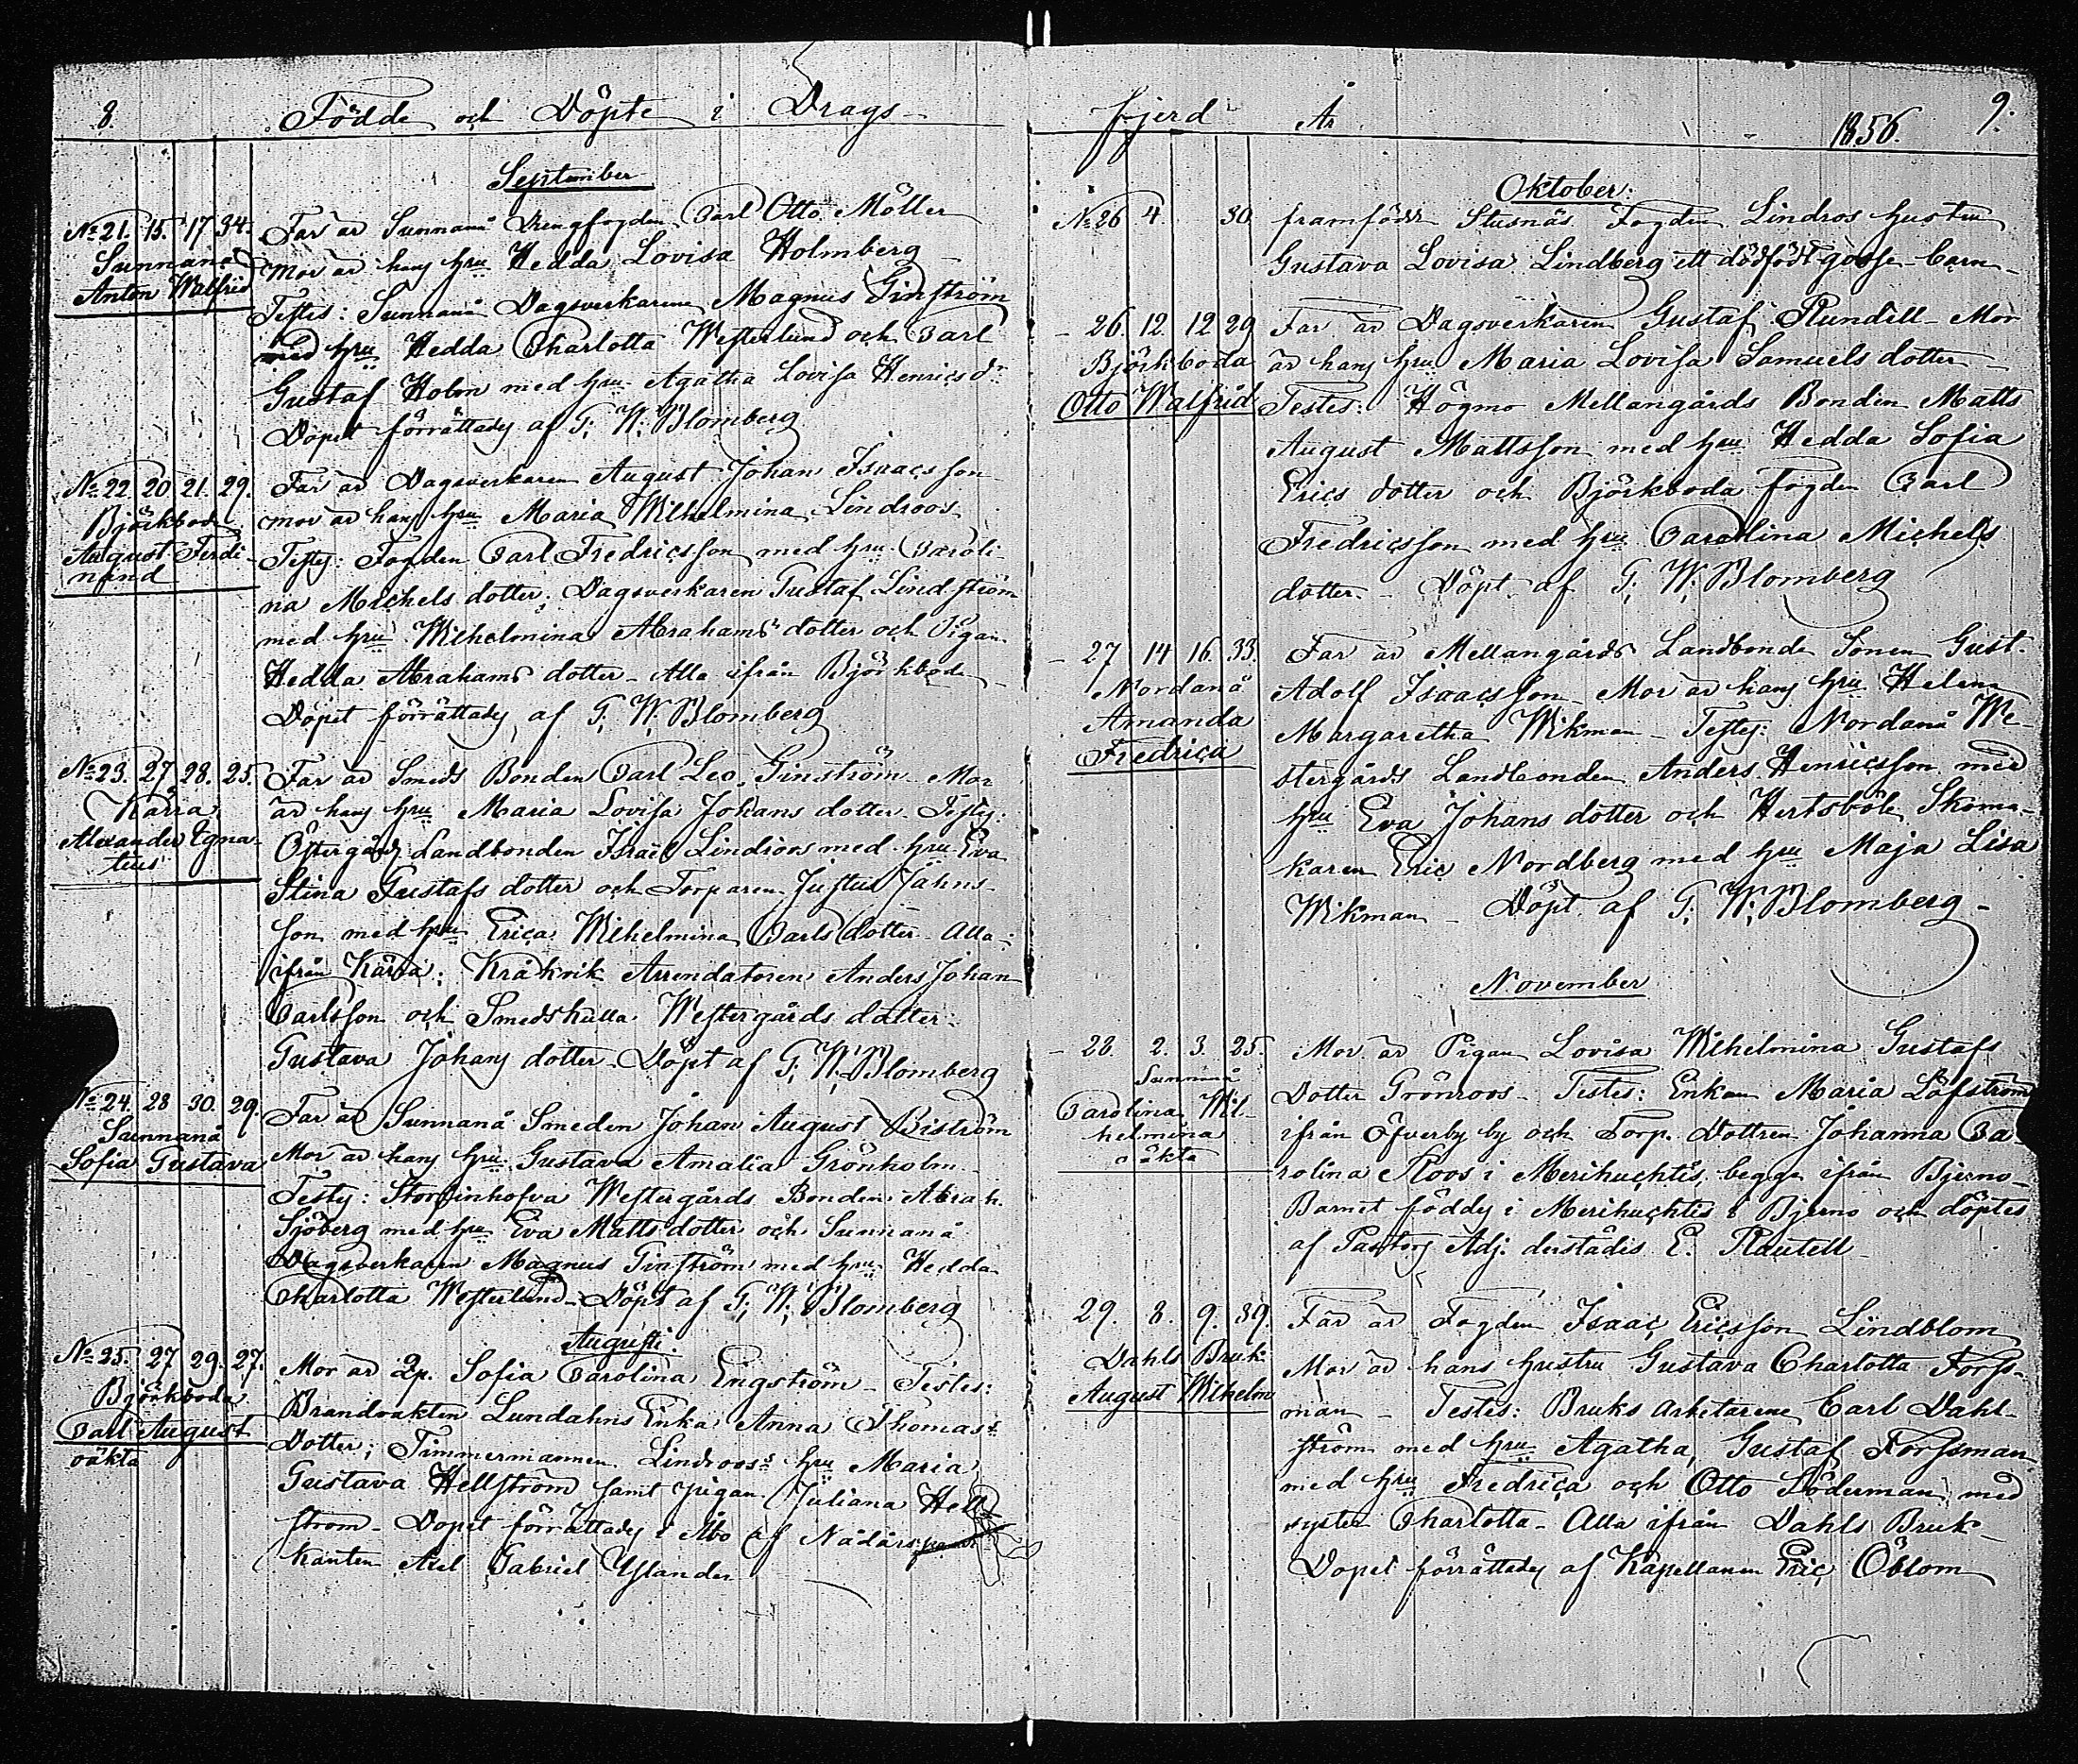 8.
Födde och Döpte i Drags-
September
No 21. 15. 17 34.
Sunnanå
Anton Walfrid
Far är Sunnanå Drengfogden Carl Otto Möller
Mor är hans hru Hedda Lovisa Holmberg
Testes: Sunnanå Dagsverkarene Magnus Ginström
med hru Hedda Charlotta Westerlund och Carl
Gustaf Holm med hru Agatha Lovisa Henricsdr
Döpet förrättades af G. W. Blomberg
No 22. 20 21. 29.
Björkboda
August Ferdi-
nand
Far är Dagsverkaren August Johan Isaacsson
mor är hans hru Maria Wilhelmina Lindroos
Testes: Fogden Carl Fredricsson med hru Caroli-
na Michels dotter; Dagsverkaren Gustaf Lindström
med hru Wilhelmina Abrahams dotter och Pigan
Hedda Abrahams dotter - Alla ifrån Björkboda
Döpet förrättades af G. W. Blomberg
No 23. 27 28. 25.
Kärra
Alexander Egna-
tius
Far är Smeds Bonden Carl Leo Ginström - Mor
är hans hru Maria Lovisa Johans dotter - Testes:
Östergårds Landbonden Israel Lindroos med hru Eva
Stina Gustafs dotter och Torparen Justus Jahns-
son med hru Erica Wilhelmina Carls dotter - Alla
ifrån Kärra; Kråkvik Arrendatoren Anders Johan
Carlsson och Smedskulla Westergårds dotter
Gustava Johans dotter - Döpt af G. W. Blomberg
No 24. 28 30. 29.
Sunnanå
Sofia Gustava
Far är Sunnanå Smeden Johan August Biström
Mor är hans hru Gustava Amalia Grönholm
Testes: Storfinhofva Westergårds Bonden Abrah.
Sjöberg med hru Eva Matts dotter och Sunnanå
Dagsverkaren Magnus Ginström med hru Hedda
Charlotta Westerlund - Döpt af G. W. Blomberg
Augusti.
No 25. 27 29. 27.
Björkboda
Carl August
oäkta
Mor är Qp. Sofia Carolina Engström - Testes:
Brandvakten Lundahns Enka Anna Thomas
Dotter; Timmermannen Lindroos's hru Maria
Gustava Hellström samt pigan Juliana Hell-
ström - Döpet förrättades i Åbo af Nådårs
kanten Axel Gabriel Yslander
fjerd År 1856. 9.
Oktober:
No 26 4 30.
framfödde Stusnäs Fogden Lindros hustru
Gustava Lovisa Lindberg ett dödfödt gosse-barn-
- 26. 12. 12 29
Björkboda
Otto Walfrid
Far är Dagsverkaren Gustaf Rundell - Mor
är hans hru Maria Lovisa Samuels dotter -
Testes: Högmo Mellangårds Bonden Matts
August Mattsson med hru Hedda Sofia
Erics dotter och Björkboda fogden Carl
Fredricsson med hru Carolina Michels
dotter. - Döpt af G. W. Blomberg
- 27 14 16. 33.
Nordanå
Amanda
Fredrica
Far är Mellangårds Landbonde Sonen Gust.
Adolf Isaacsson - Mor är hans hru Helena
Margaretha Wikman - Testes: Nordanå We-
stergårds Landbonden Anders Henricsson med
hru Eva Johans dotter och Hertsböle Skoma-
karen Eric Nordberg med hru Maja Lisa
Wikman - Döpt af G. W. Blomberg -
November
- 28. 2. 3. 25.
Sunnanå
Carolina Wil-
helmina
oäkta
Mor är Pigan Lovisa Wilhelmina Gustafs
Dotter Grönroos - Testes: Enkan Maria Löfström
ifrån Öfverby by och Torp. Dottren Johanna Ca-
rolina Roos i Merihuchtis, begge ifrån Bjerno
Barnet föddes i Merihuchtis i Bjerno och döptes
af Pastors Adj. derstädis E. Rautell
29. 8. 9. 39.
Dahls Bruk
August Wilhelm
Far är Fogden Isaac Ericsson Lindblom
Mor är hans hustru Gustava Charlotta Forss-
man - Testes: Bruks arbetarene Carl Dahl-
ström med hru Agatha, Gustaf Forssman
med hru Fredrica och Otto Söderman med
syster Charlotta - Alla ifrån Dahls Bruk -
Döpet förrättades af Kapellanen Eric Öblom